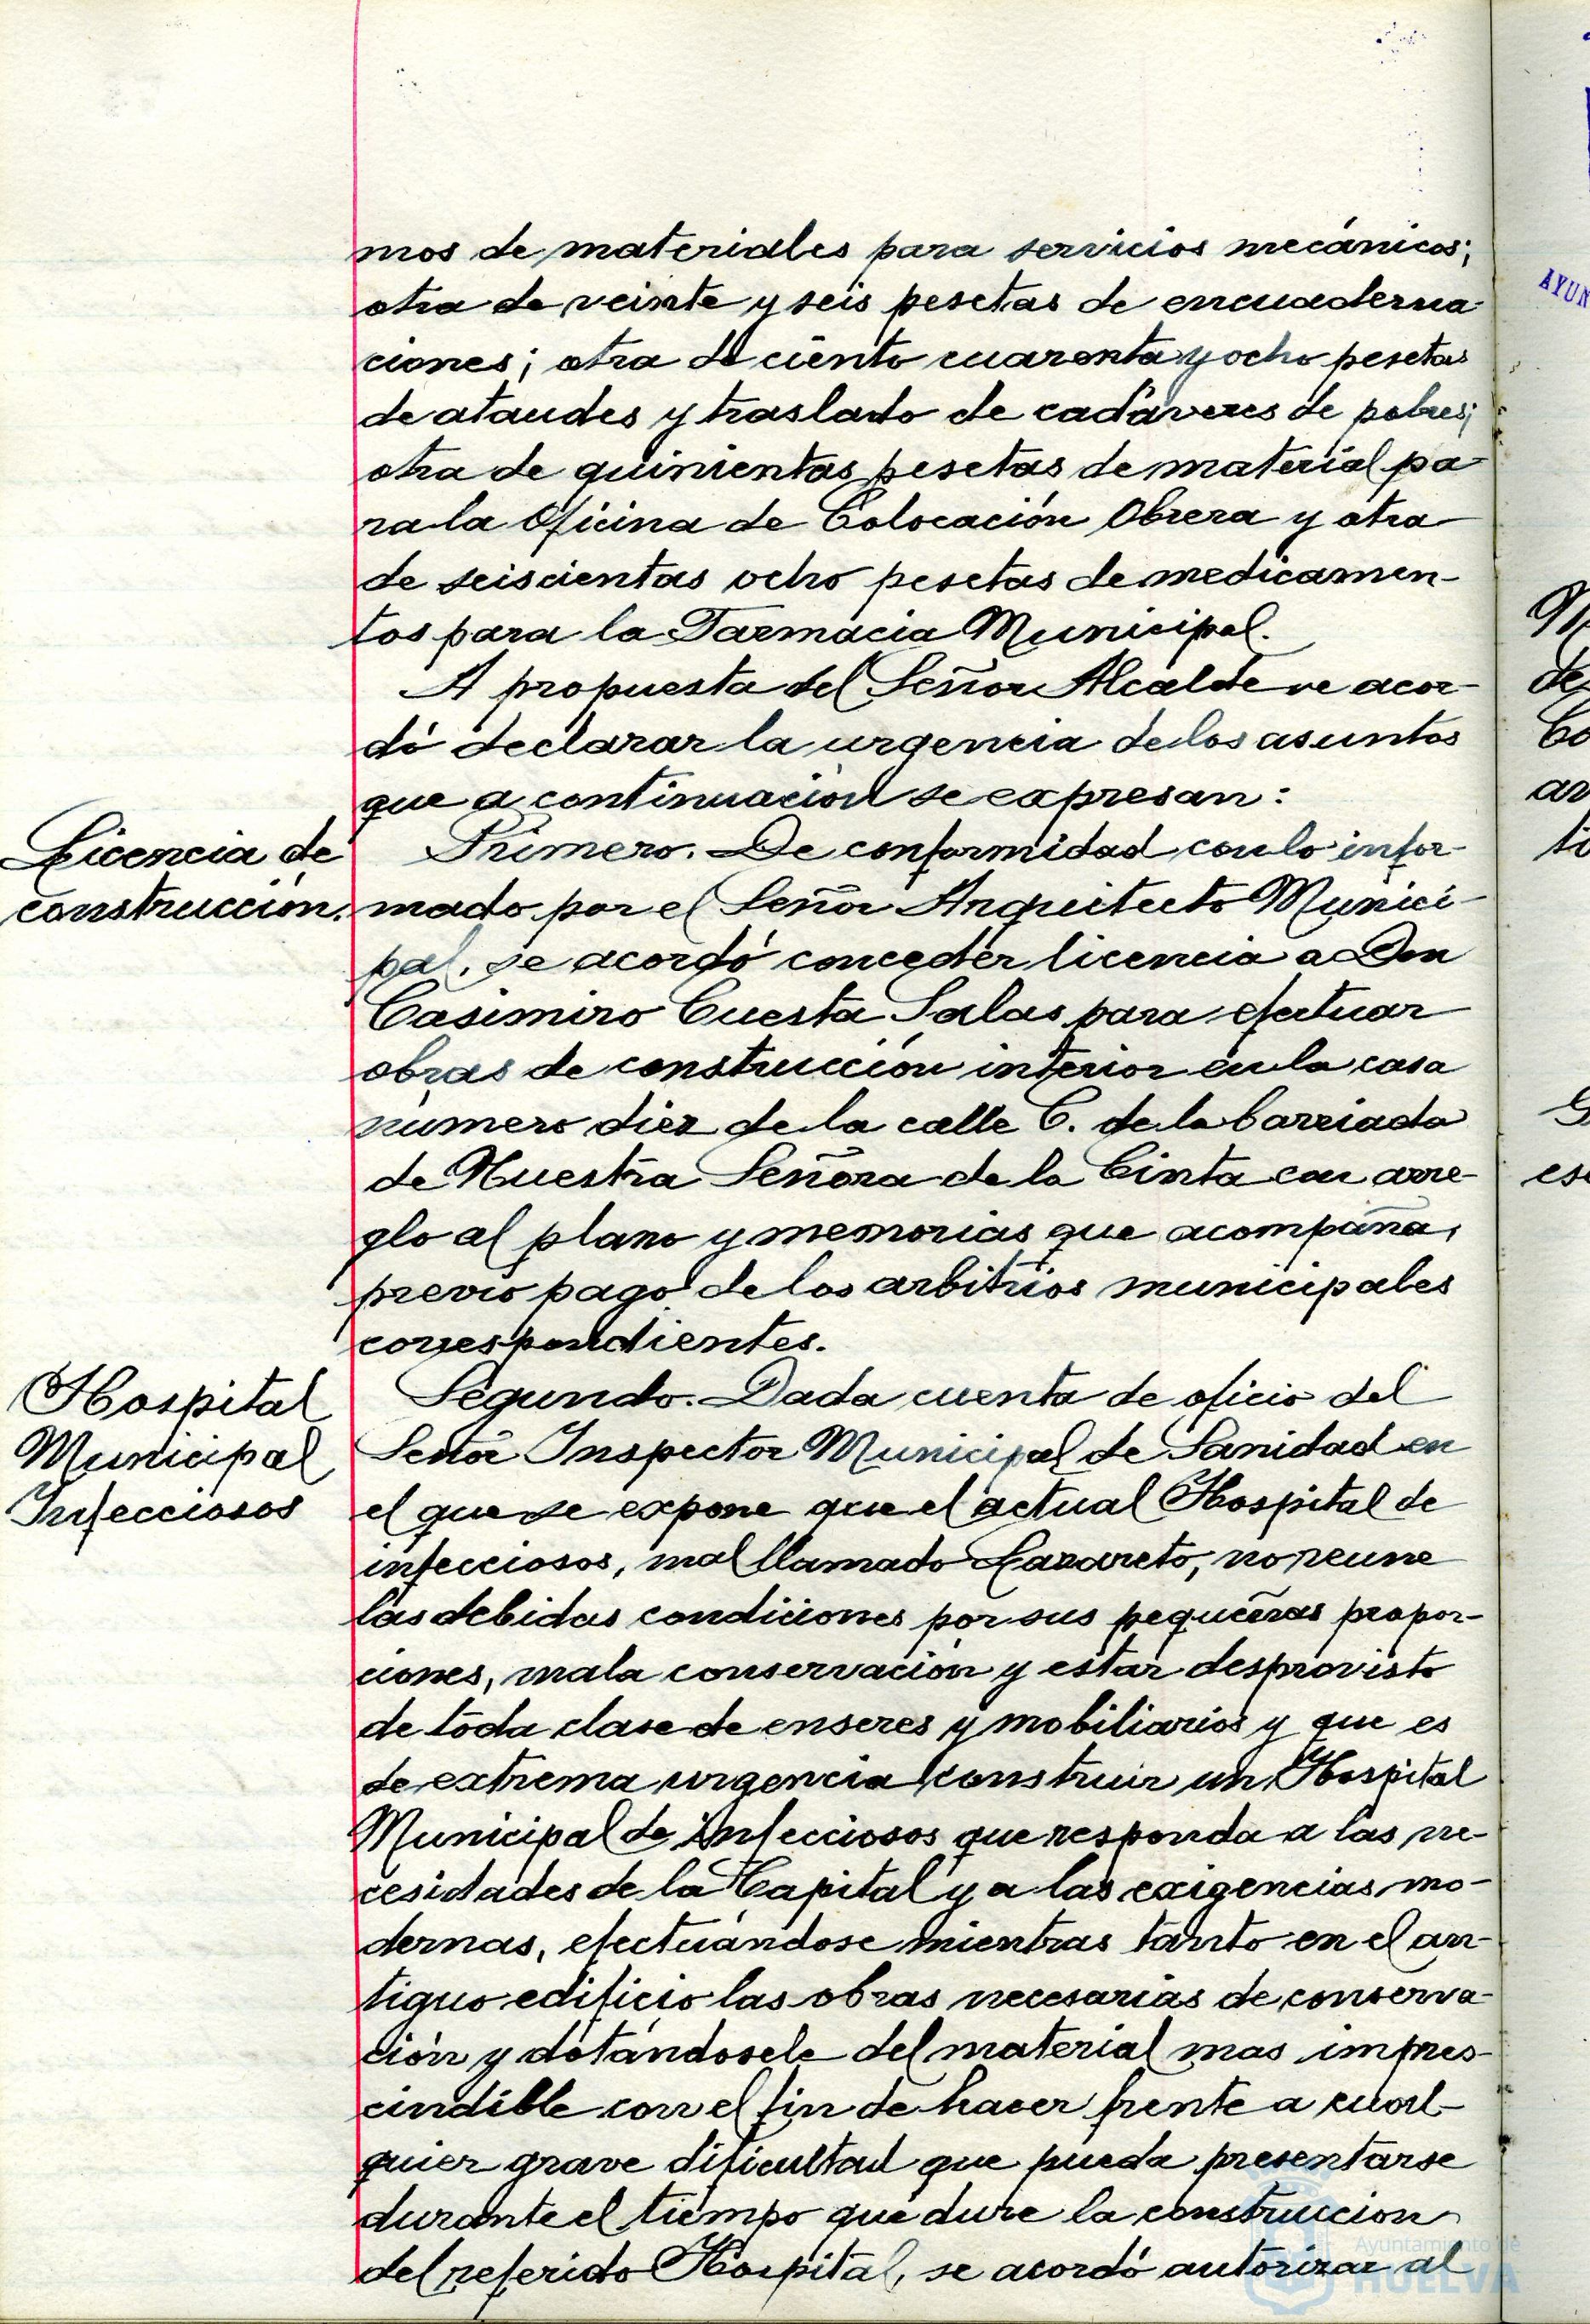 mos de materiales para servicios mecánicos;
otra de veinte y seis pesetas de encuaderna-
ciones; otra de ciento cuarenta y ocho pesetas
de ataudes y traslado de cadáveres de pobres;
otra de quinientas pesetas de material pa-
ra la Oficina de Colocación Obrera y otra
de seiscientas ocho pesetas de medicamen-
tos para la Farmacia Municipal.
A propuesta del Señor Alcalde se acor-
dó declarar la urgencia de los asuntos
que a continuación se expresan:
Licencia de
construcción.
Primero. De conformidad con lo infor-
mado por el Señor Arquitecto Munici-
pal, se acordó conceder licencia a Don
Casimiro Cuesta Salas para efectuar
obras de construcción interior en la casa
número diez de la calle C. de la barriada
de Nuestra Señora de la Cinta con arre-
glo al plano y memorias que acompaña,
previo pago de los arbitrios municipales
correspondientes.
Hospital
Municipal
Infecciosos
Segundo. Dada cuenta de oficio del
Señor Inspector Municipal de Sanidad en
el que se expone que el actual Hospital de
infecciosos, mal llamado Lazareto, no reune
las debidas condiciones por sus pequeñas propor-
ciones, mala conservación y estar desprovisto
de toda clase de enseres y mobiliarios y que es
de extrema urgencia construir un Hospital
Municipal de infecciosos que responda a las ne-
cesidades de la Capital y a las exigencias mo-
dernas, efectuándose mientras tanto en el an-
tiguo edificio las obras necesarias de conserva-
ción y dotándosele del material mas impres-
cindible con el fin de hacer frente a cual-
quier grave dificultad que pueda presentarse
durante el tiempo que dure la construccion
del referido Hospital, se acordó autorizar al
Ayuntamiento de
HUELVA
AYUN